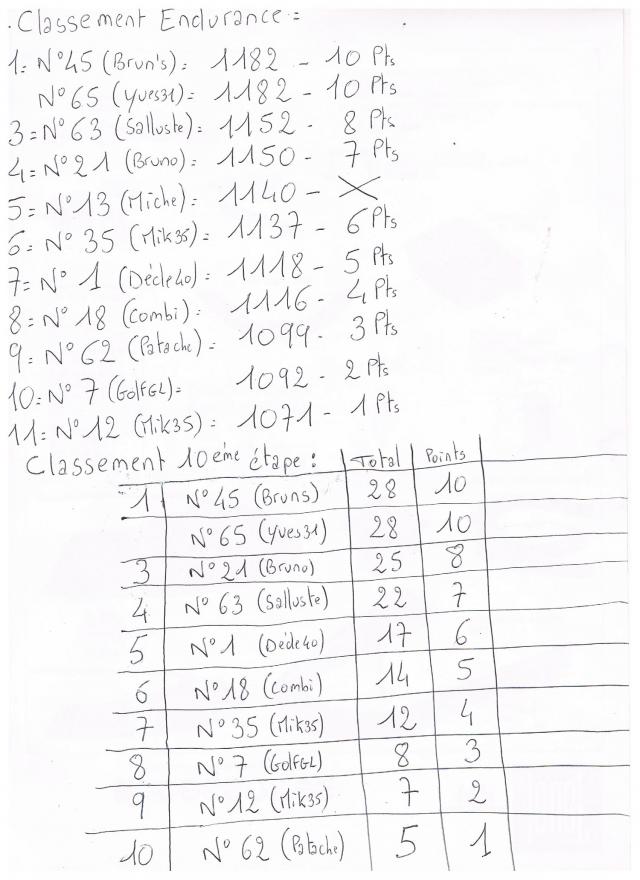 . Classement Endurance =
1= N°45 (Brun's) = 1182 - 10 Pts
N°65 (Yves31) = 1182 - 10 Pts
3= N°63 (Salluste) = 1152 - 8 Pts
4= N°21 (Bruno) = 1150 - 7 Pts
5= N°13 (Miche) = 1140 - X
6= N°35 (Mik35) = 1137 - 6 Pts
7= N°1 (Décle40) = 1118 - 5 Pts
8= N°18 (Combi) = 1116 - 4 Pts
9= N°62 (Patache) = 1099 - 3 Pts
10= N°7 (GolfGL) = 1092 - 2 Pts
11= N°12 (Mik35) = 1071 - 1 Pts
Classement 10eme étape : Total Points
1 N°45 (Bruns) 28 10
N°65 (Yves31) 28 10
3 N°21 (Bruno) 25 8
4 N°63 (Salluste) 22 7
5 N°1 (Décle40) 17 6
6 N°18 (Combi) 14 5
7 N°35 (Mik35) 12 4
8 N°7 (GolfGL) 8 3
9 N°12 (Mik35) 7 2
10 N°62 (Patache) 5 1